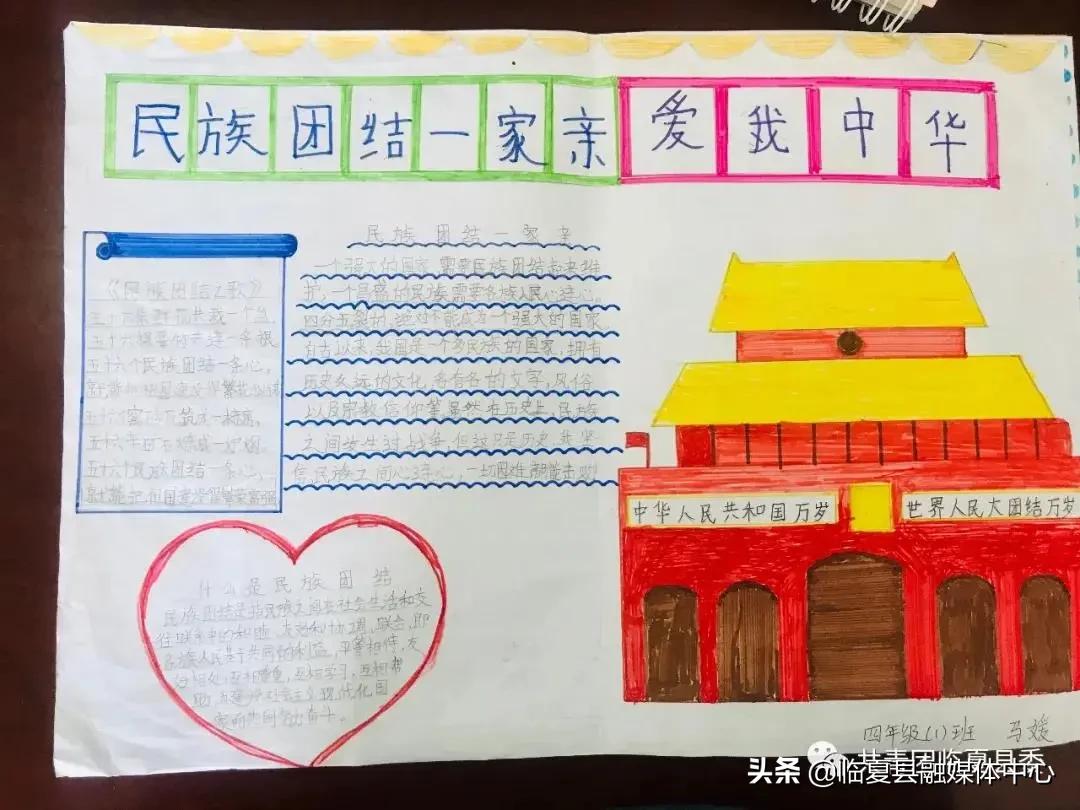 民族团结一家亲爱我中华
《民族团结之歌》
五十六朵鲜花共栽一个盆
五十六棵青竹共连一条根
五十六个民族团结一条心,
就能把祖国建设得繁荣
五十六
五十六
五十六个民族团结一条心,
就能把祖国建设得繁荣富强
民族 团结一家亲
一个强大的国家,需要民族团结起来维
护,一个昌盛的民族,需要各族人民心连心。
四分五裂的,绝对不能成为一个强大的国家
自古以来,我国是一个多民族的国家,拥有
历史久远的文化,各有各的文字,风俗
以及宗教信仰等,虽然在历史上,民族
之间发生过战争,但这只是历史,我坚
信,民族之间心连心,一切困难都能击败!
什么是民族团结
民族团结是指民族之间在社会生活和交
往联系中的和睦、友好和协调、联合,即
各族人民基于共同的利益,平等相待,友
好相处,互相尊重,互相学习,互相帮
助,为建设社会主义现代化国
家而共同努力奋斗。
中华人民共和国万岁
世界人民大团结万岁
四年级(1)班 马媛
共青团临夏县委
头条 @临夏县融媒体中心